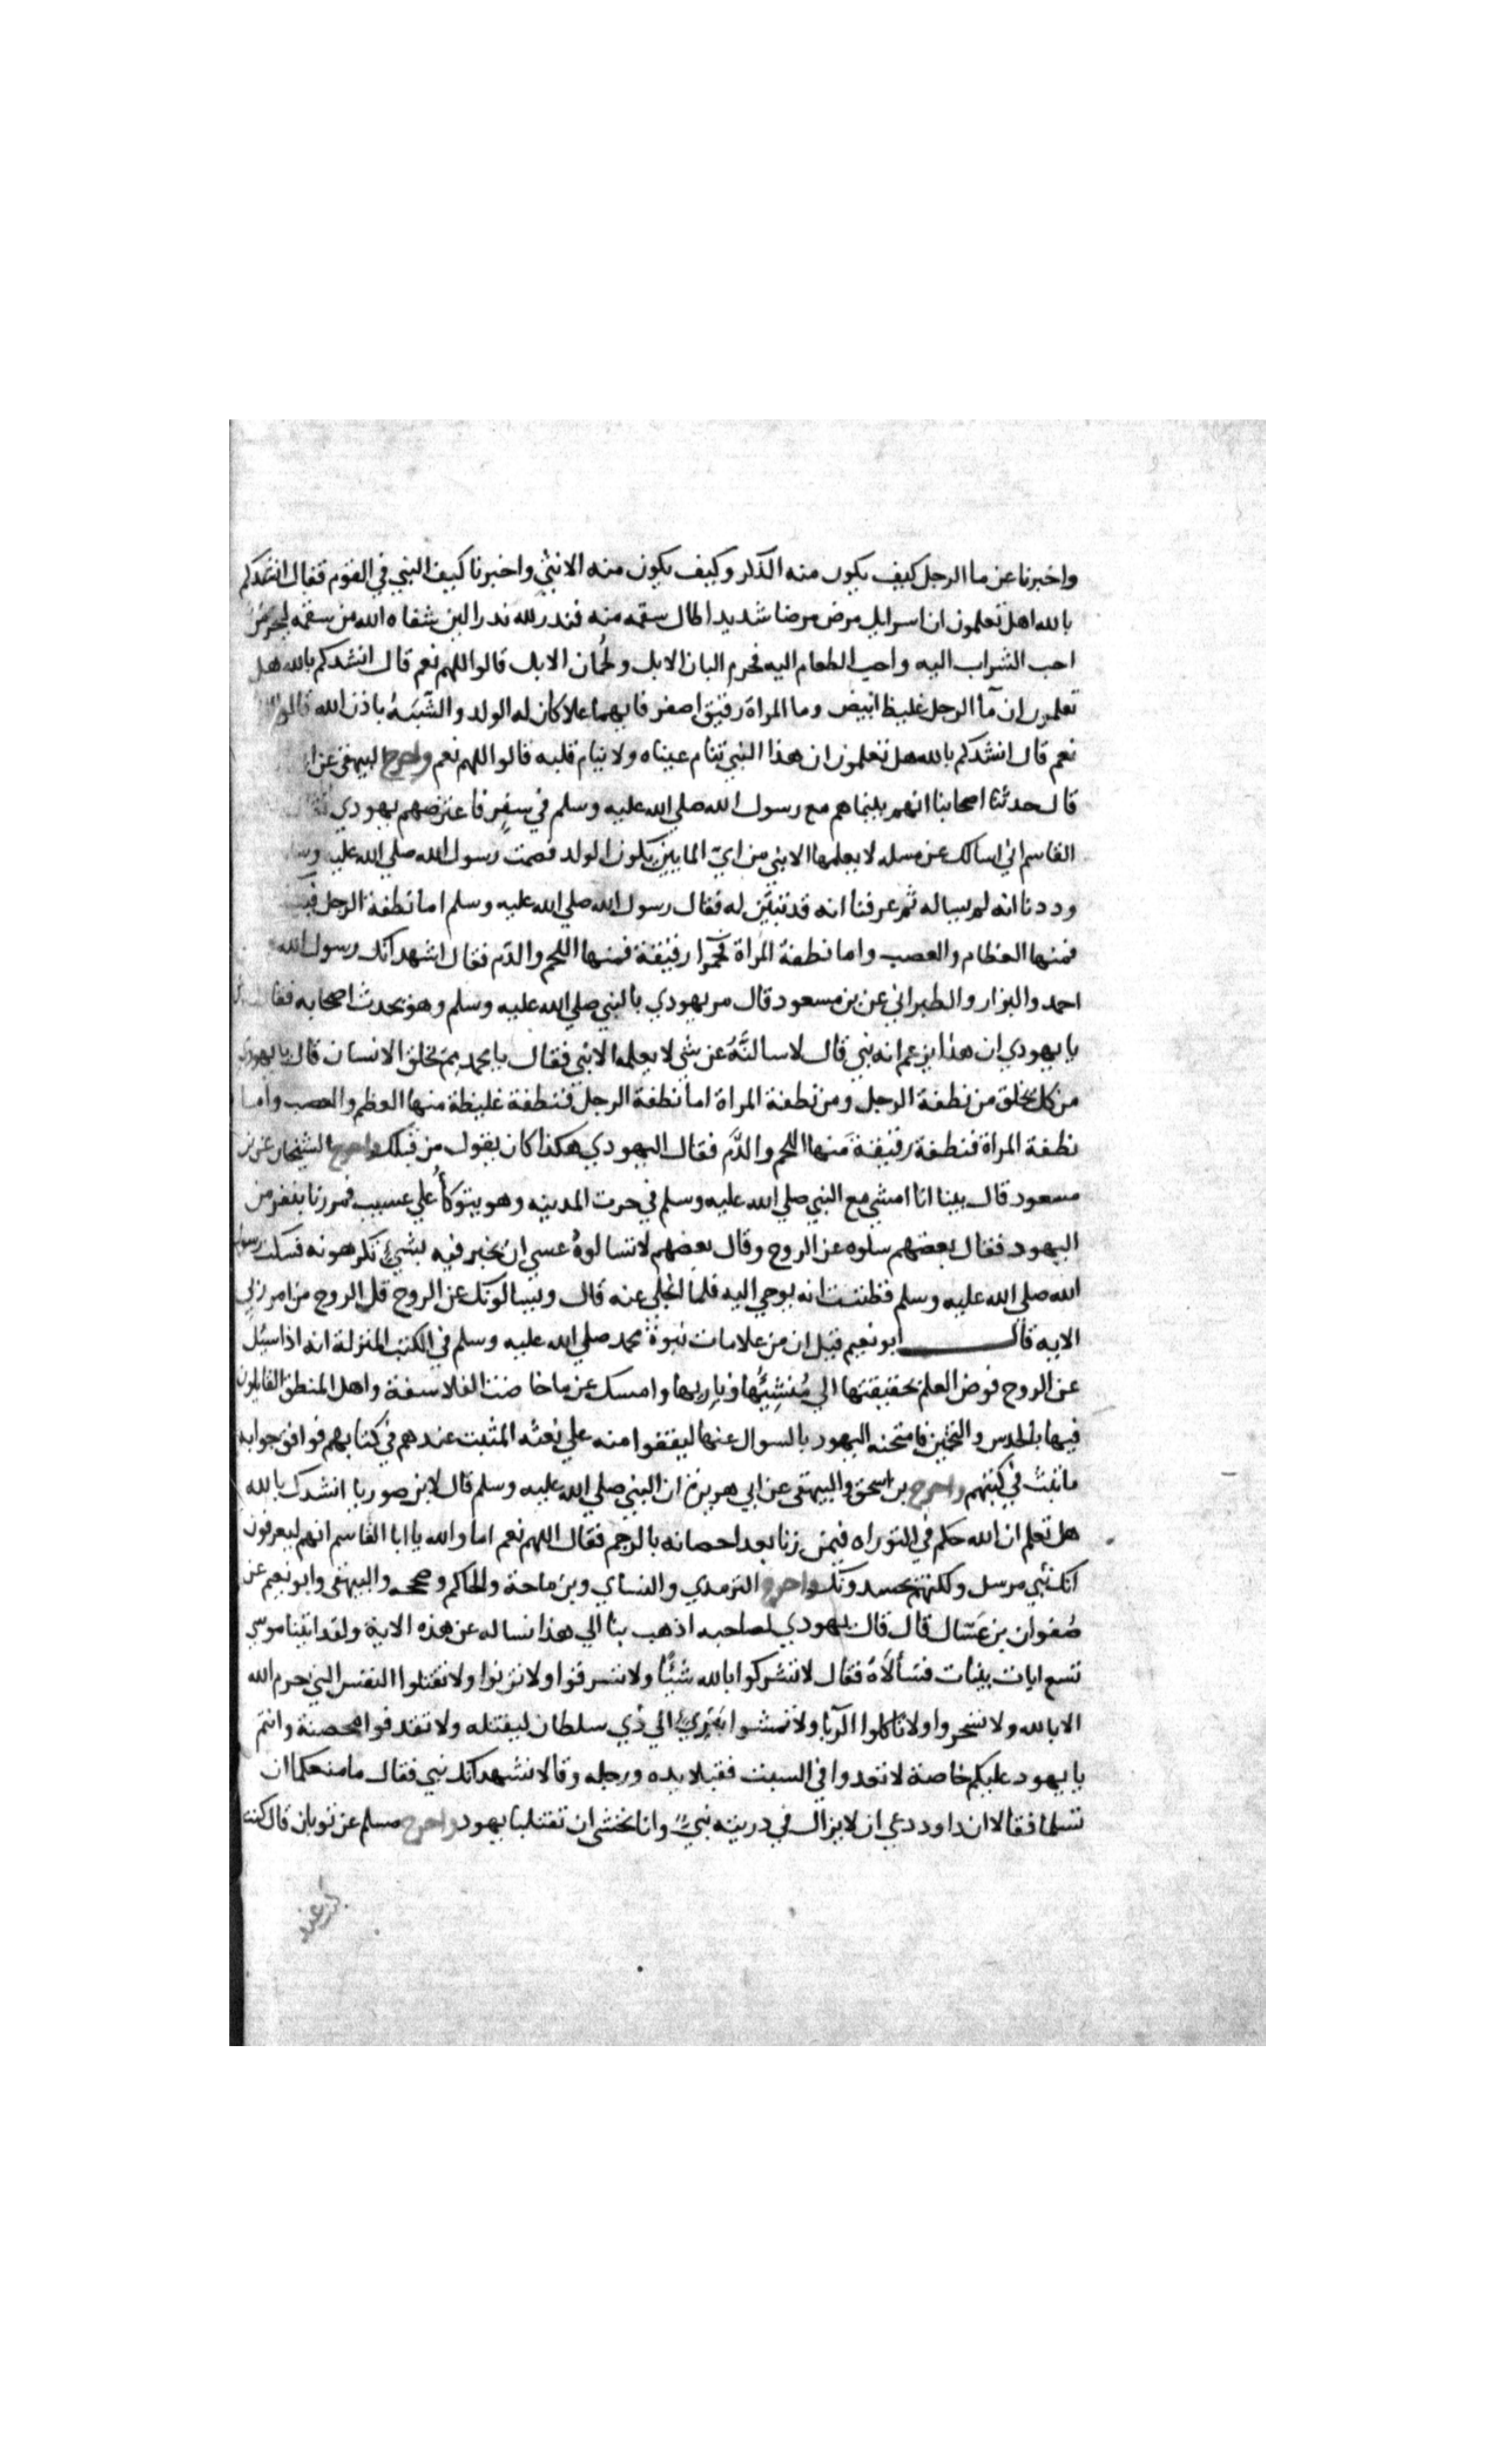 واخبرنا عن ما الرجل كيف يكون منه الذكر وكيف يكون منه الانثي واخبرنا كيف النبي في النوم فقال انشدكم
بالله هل تعلمون ان اسرايل مرض مرضا شديدا طال سقمه منه فندر لله ندرا لين شفاه الله من سقمه ليحرمن
احب الشراب اليه واحب الطعام اليه فحرم البان الابل ولحُمان الابل قالوا اللهم نعم قال انشدكم بالله هل
تعلمون ان مآ الرجل غليظ ابيض وما المراة رقيق اصفر فايهما علا كان له الولد والشَّبَهُ باذن الله قالوا
نعم قال انشدكم بالله هل تعلمون ان هذا النبي تنام عيناه ولا ينام قلبه قالوا اللهم نعم واخرج البيهقي عن
قال حدثنا اصحابنا انهم بينما هم مع رسول الله صلي الله عليه وسلم في سفر فاعترضهم يهودي
القاسم اني اسالك عن مسله لا يعلمها الا نبي من اي المايين يكون الولد فصمت رسول الله صلي الله عليه
وددنا انه لم يساله ثم عرفنا انه قد تبيّن له فقال رسول الله صلي الله عليه وسلم اما نطفة الرجل
فمنها العظام والعصب واما نطفة المراة فحمرآ رقيقة فمنها اللحم والدم فقال اشهد انك رسول الله
احمد والبزار والطبراني عن بن مسعود قال مر يهودي بالنبي صلي الله عليه وسلم وهو يحدث اصحابه
يا يهودي ان هذا يزعم انه نبي قال لاسالنَّهُ عن شي لا يعلمه الا نبي فقال يا محمد مِمّ يخلق الانسان قال يا يهودي
من كل يخلق من نطفة الرجل ومن نطفة المراة اما نطفة الرجل فنطفة غليظة منها العظم والعصب واما
نطفة المراة فنطفة رقيقة منها اللحم والدَّم فقال اليهودي هكذا كان يقول من قبلك واخرج الشيخان عن بن
مسعود قال بينا انا امشي مع النبي صلي الله عليه وسلم في حرت المدينه وهو يتوكأ علي عسيب فمررنا بنفر من
اليهود فقال بعضهم سلوه عن الروح وقال بعضهم لا تسالوهُ عسي ان يخبر فيه بشيئ تكرهونه فسكت رسول
الله صلي الله عليه وسلم فظننت انه يوحي اليه فلما انجلي عنه قال ويسالونك عن الروح قل الروح من امر ربي
الايه قال ابو نعيم قيل ان من علامات نبوة محمد صلي الله عليه وسلم في الكتب المنزلة انه اذا سيُل
عن الروح فوض العلم بحقيقتها الي مُنشِئِها وباريها وامسك عن ما خاضت الفلاسفة واهل المنطق القايلون
فيها بالحدس والتخمين فامتحنه اليهود بالسوال عنها ليقفوا منه علي نعته المثبت عندهم في كتابهم فوافق جوابه
ما ثبت في كتبهم واخرج بن اسحق والبيهقي عن ابي هريرة ان النبي صلي الله عليه وسلم قال لابن صوريا انشدك بالله
هل تعلم ان الله حكم في التوراه فيمن زنا بعد احصانه بالرجم فقال اللهم نعم اما والله يا ابا القاسم انهم ليعرفون
انك نبي مرسل ولكنهم يحسدونك واخرج الترمدي والنساي وبن ماجة والحاكم وصححه والبيهقي وابو نعيم عن
صُفوان بن عَسَّال قال قال يهودي لصاحبه اذهب بنا الي هذا نساله عن هذه الاية ولقد اتينا موسي
تسع ايات بينات فسألَاهُ فقال لا تشركوا بالله شيًا ولا تسرقوا ولا تزنوا ولا تقتلوا النفس التي حرم الله
الا بالله ولا تسحروا ولا تاكلوا الرّبا ولا تمشوا بَبَرِيءٍ الي ذي سلطان ليقتله ولا تقدفوا محصنة وانتم
يا يهود عليكم خاصة لا تعدوا في السبت فقبلا يده ورجله وقالا نشهد انك نبي فقال ما منعكما ان
تسلما فقالا ان داود دعي ان لا يزال في دريته نبيٌّ وانا نخشي ان تقتلنا يهود واخرج مسلم عن ثوبان قال كنت